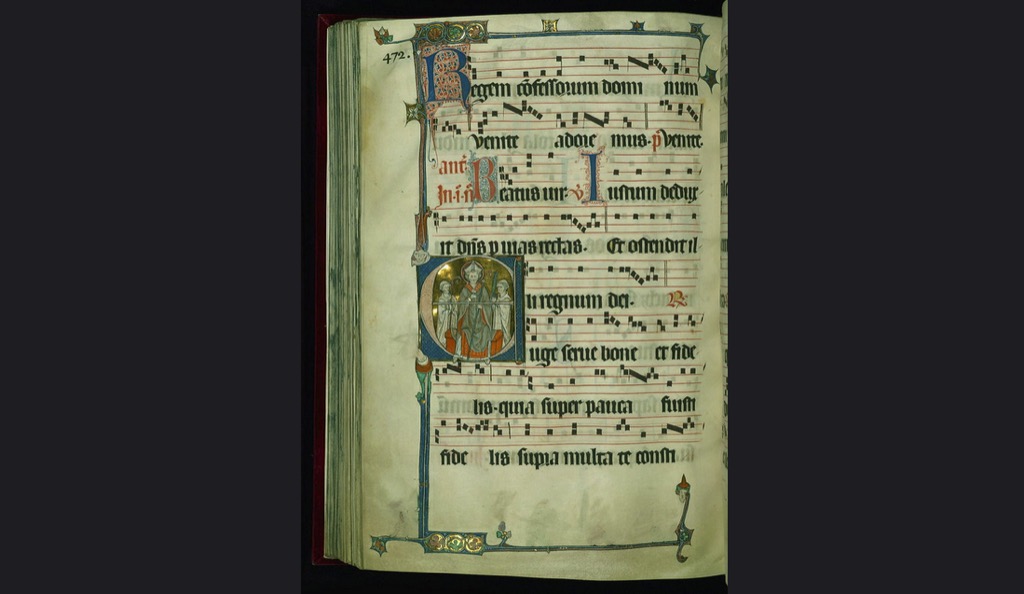 472.
Regem cōfessorum domi num
Venite adore mus. p̄ Venite.
ant̄
In .i. n̄ Beatus uir. v̄ Iustum dedux
it dn̄s p uias rectas. Et ostendit il
li regnum dei. R
Euge serue bone et fide
lis. quia super pauca fuisti
fide lis supra multa te consti